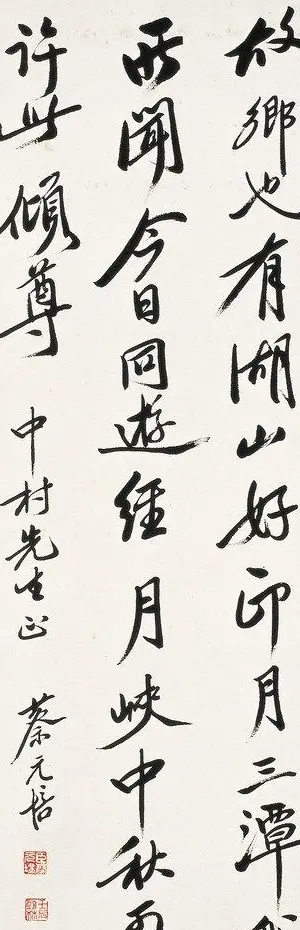 故鄉也有湖山好印月三潭
所聞今日同遊經月峽中秋
許此傾尊
中村先生正
蔡元培